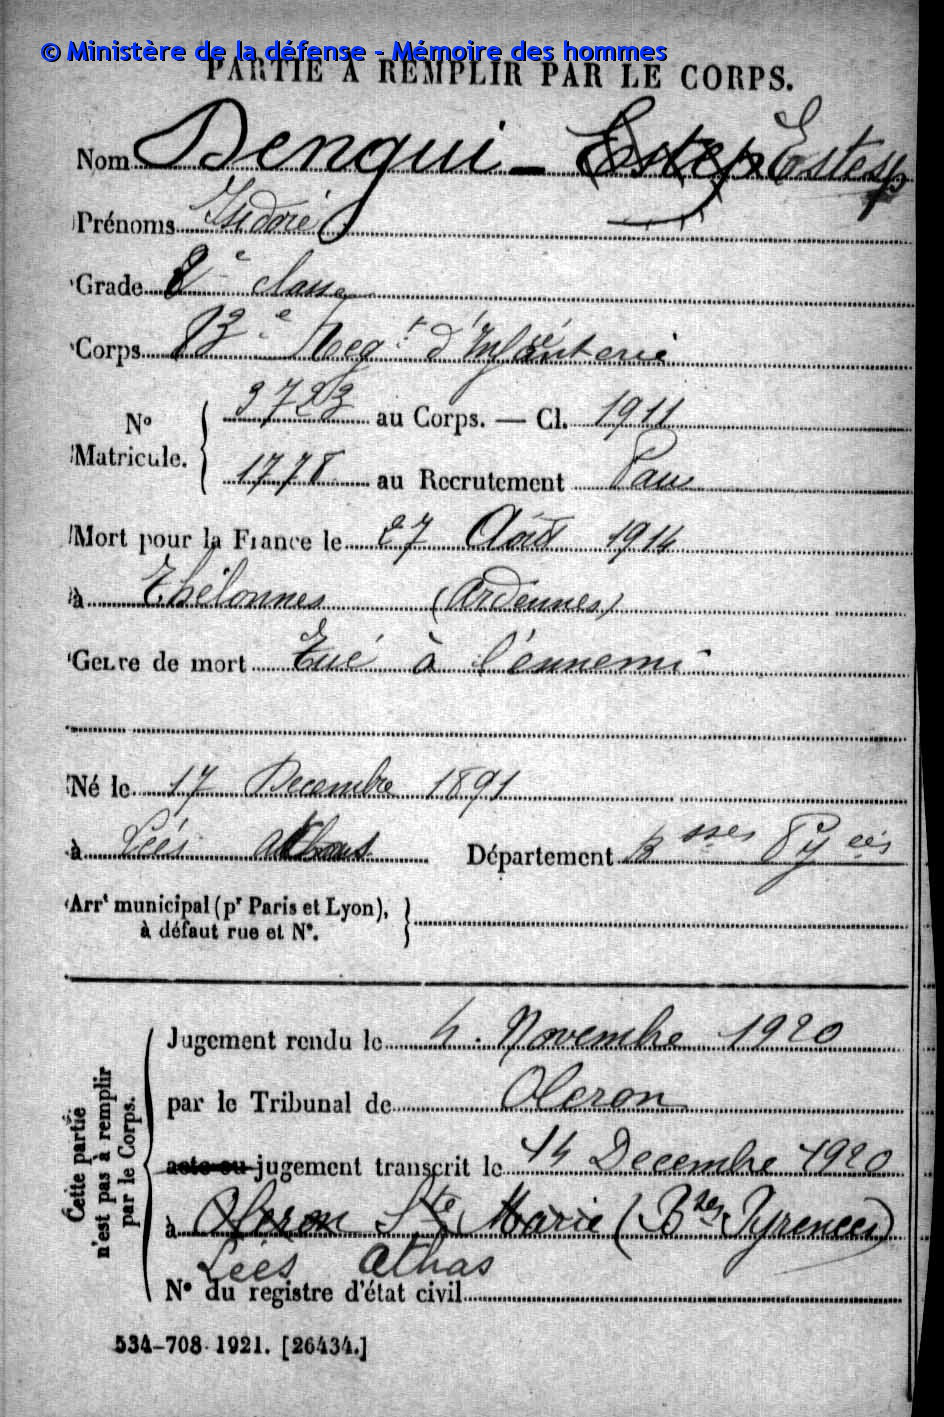 © Ministère de la défense - Mémoire des hommes
PARTIE À REMPLIR PAR LE CORPS.
Nom Bengui - Estep Estep
Prénoms Isidore
Grade 2e classe
Corps 83e Regt d'Infanterie
No Matricule. 3723 au Corps. — Cl. 1911
1778 au Recrutement Pau
Mort pour la France le 27 Août 1914
à Thélonnes (Ardennes)
Genre de mort Tué à l'ennemi
Né le 17 Decembre 1891
à Léès Athas Département Bsses Pyées
Arrt municipal (pr Paris et Lyon),
à défaut rue et N°.
Cette partie
n'est pas à remplir
par le Corps.
Jugement rendu le 4. Novembre 1920
par le Tribunal de Oloron
acte ou jugement transcrit le 14 Decembre 1920
à Oloron Ste Marie (Bses Pyrenees)
Léès Athas
N° du registre d'état civil
534-708. 1921. [26434.]